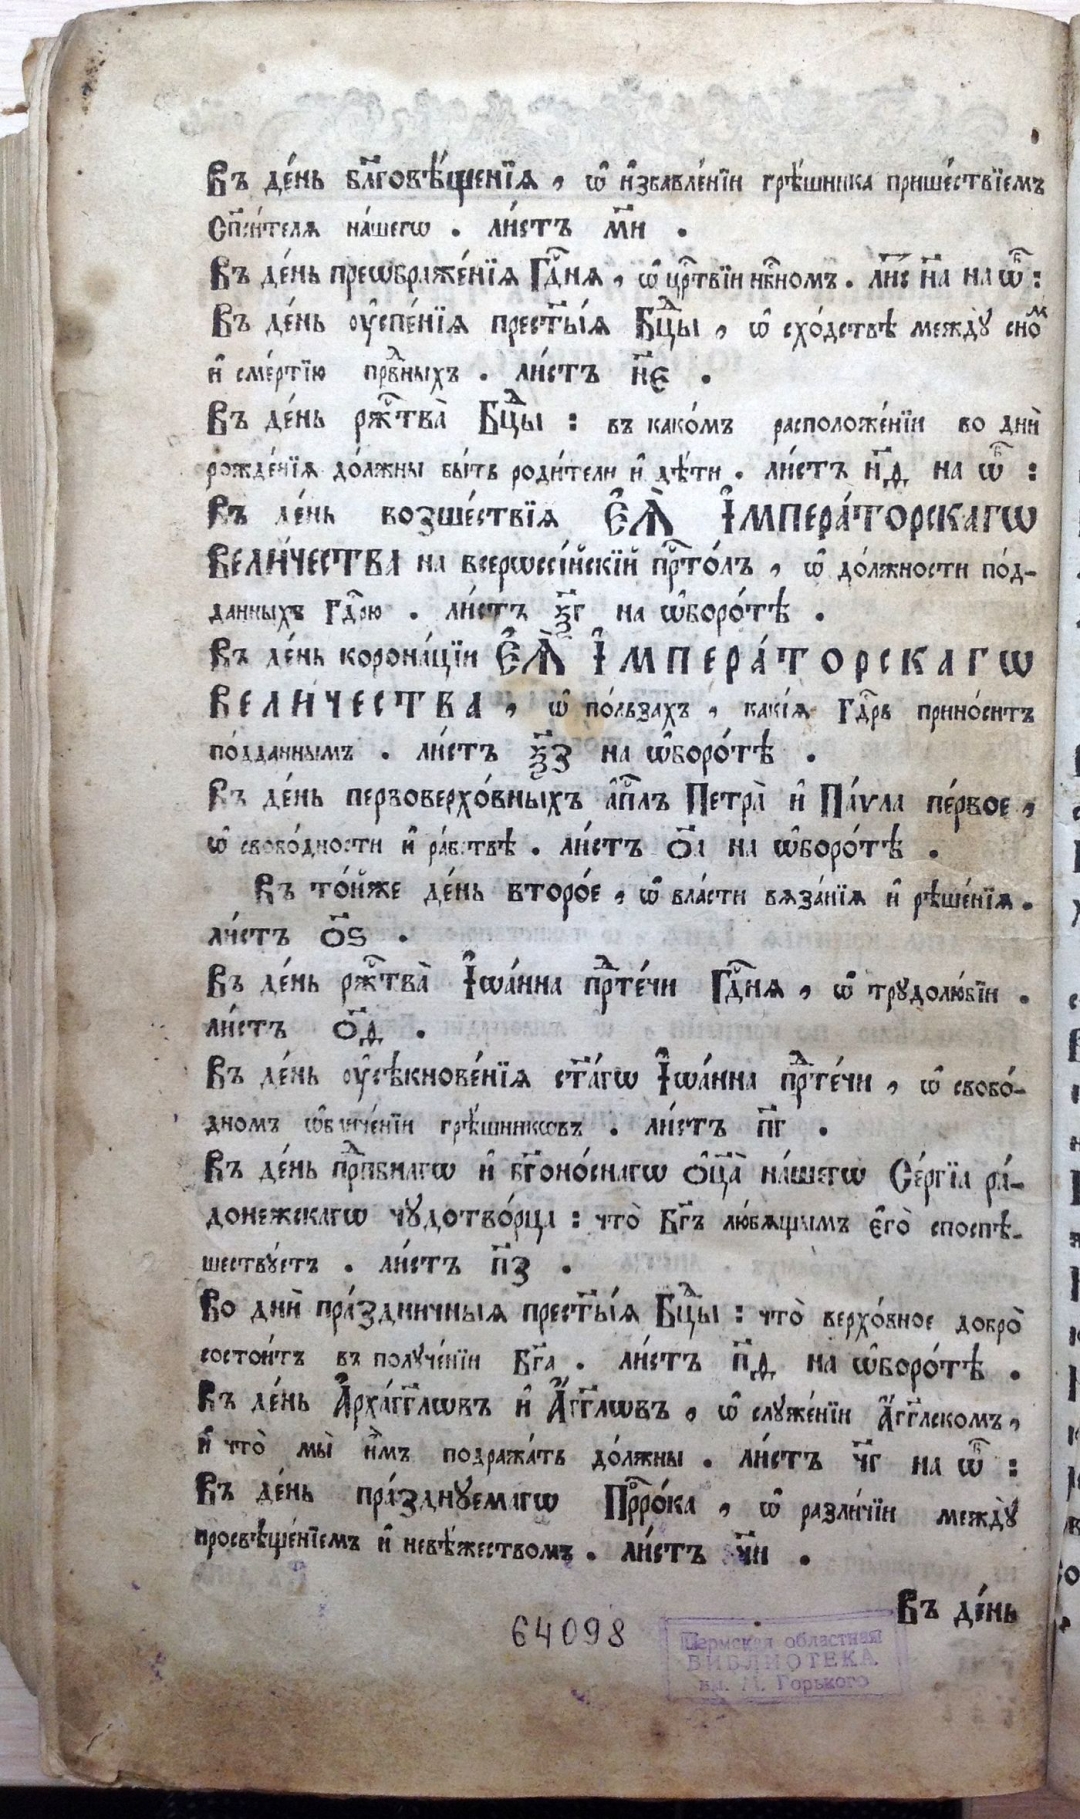 Въ де́нь бл҃говѣ́щенїѧ , ѡ҆ и҆збавле́нїи грѣ́шника прише́ствїемъ
Сп҃си́телѧ на́шегѡ . ли́стъ м҃и .
Въ де́нь преѡбраже́нїѧ Гдⷭ҇нѧ , ѡ҆ црⷭ҇твїи нбⷭ҇номъ . лиⷭ҇ н҃а на ѡ҆ :
Въ де́нь ᲂу҆спе́нїѧ прест҃ы́ѧ Бцⷣы , ѡ҆ схо́дствѣ междꙋ̀ сноⷨ
и҆ сме́ртїю првⷣныхъ . ли́стъ н҃є .
Въ де́нь ржⷭ҇тва̀ Бцⷣы : въ како́мъ расположе́нїи во днѝ
рожде́нїѧ до́лжны бы́ть роди́тели и҆ дѣ́ти . ли́стъ н҃ѳ на ѡ҆ :
Въ де́нь возше́ствїѧ Є҆Ѧ̀ І҆мпера́торскагѡ
Вели́чества на всерѡссі́йскїй прⷭ҇то́лъ , ѡ҆ до́лжности по́д-
данныхъ Гдⷭ҇рю . ли́стъ ѯ҃г на ѡ҆боро́тѣ .
Въ де́нь корона́цїи Є҆Ѧ̀ І҆мпера́торскагѡ
Вели́чества , ѡ҆ по́льзахъ , какі́ѧ Гдⷭ҇рь прино́ситъ
по́дданнымъ . ли́стъ ѯ҃з на ѡ҆боро́тѣ .
Въ де́нь первоверхо́вныхъ а҆пⷭ҇лъ Петра̀ и҆ Па́ѵла пе́рвое ,
ѡ҆ свобо́дности и҆ ра́бствѣ . ли́стъ о҃а на ѡ҆боро́тѣ .
Въ то́йже де́нь второ́е , ѡ҆ вла́сти вѧза́нїѧ и҆ рѣше́нїѧ .
ли́стъ о҃ѕ .
Въ де́нь ржⷭ҇тва̀ І҆ѡа́нна прⷣте́чи Гдⷭ҇нѧ , ѡ҆ трꙋдолю́бїи .
ли́стъ о҃ѳ .
Въ де́нь ᲂу҆сѣкнове́нїѧ ст҃а́гѡ І҆ѡа́нна прⷣте́чи , ѡ҆ свобо́-
дномъ ѡ҆бличе́нїи грѣ́шникѡвъ . ли́стъ п҃г .
Въ де́нь прпⷣбнагѡ и҆ бг҃оно́снагѡ ѻ҆ц҃а̀ на́шегѡ Се́ргїа ра́-
донежскагѡ чꙋдотво́рца : что̀ Бг҃ъ лю́бѧщымъ є҆го̀ споспѣ-
шествꙋ́етъ . ли́стъ п҃з .
Во днѝ пра́здничныѧ прест҃ы́ѧ Бцⷣы : что̀ верхо́вное добро̀
состои́тъ въ полꙋче́нїи Бг҃а . ли́стъ п҃ѳ на ѡ҆боро́тѣ .
Въ де́нь А҆рха́гг҃лѡвъ и҆ А҆́гг҃лѡвъ , ѡ҆ слꙋже́нїи А҆́гг҃лскомъ ,
и҆ что̀ мы̀ и҆̀мъ подража́ть до́лжны . ли́стъ ч҃г на ѡ҆ :
Въ де́нь пра́зднꙋемагѡ Прⷪ҇ро́ка , ѡ҆ разли́чїи междꙋ̀
просвѣще́нїемъ и҆ невѣ́жествомъ . ли́стъ ч҃и .
Въ де́нь
64098
Пермская областная
БИБЛИОТЕКА
им. М. Горького